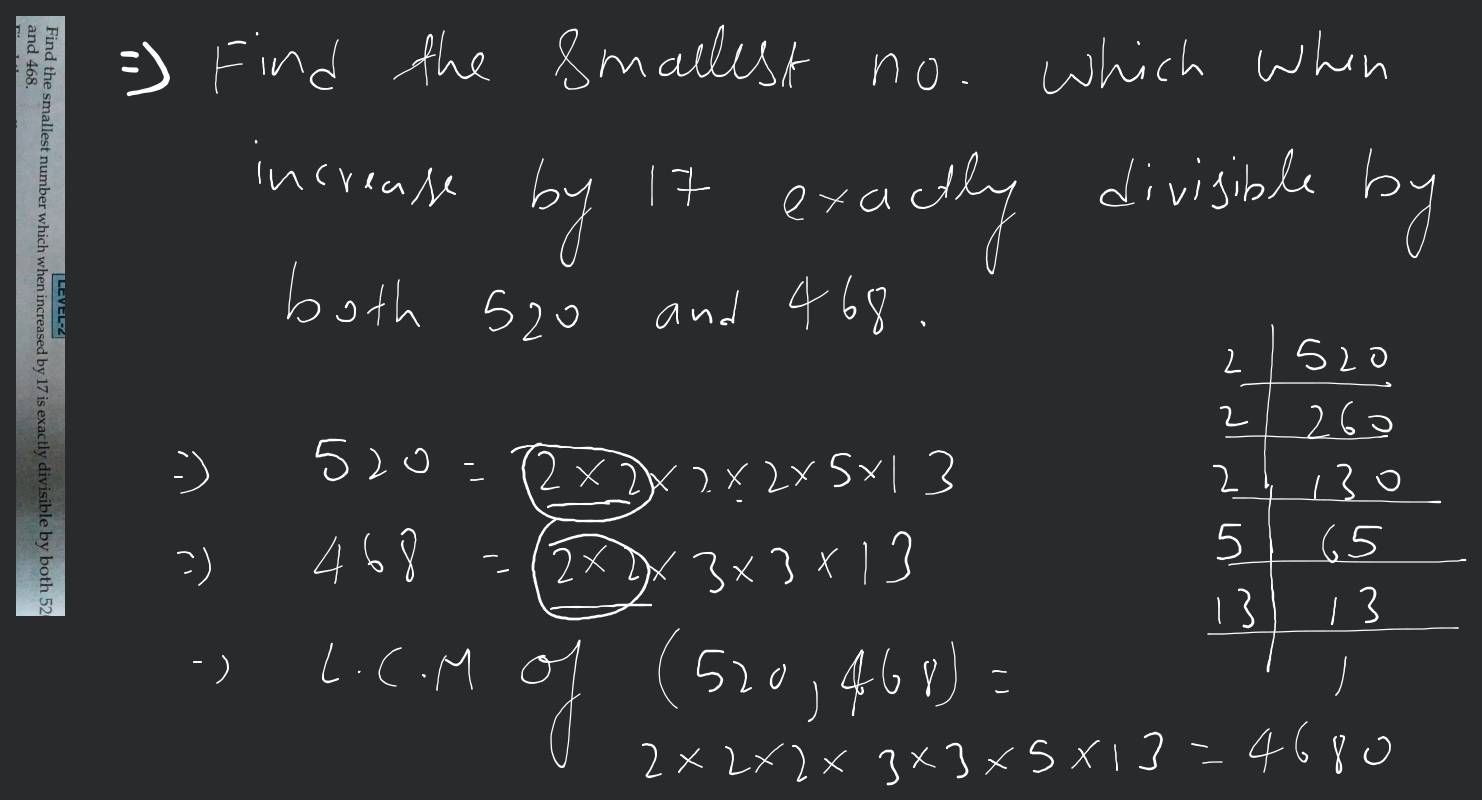 LEVEL-2
Find the smallest number which when increased by 17 is exactly divisible by both 52
and 468.
=) Find the smallest no. which when
increase by 17 exactly divisible by
both 520 and 468.
=) 520 = 2×2×2×2×5×13
=) 468 = 2×2×3×3×13
-) L.C.M of (520, 468) =
2×2×2×3×3×5×13 = 4680
2 | 520
2 | 260
2 | 130
5 | 65
13 | 13
1